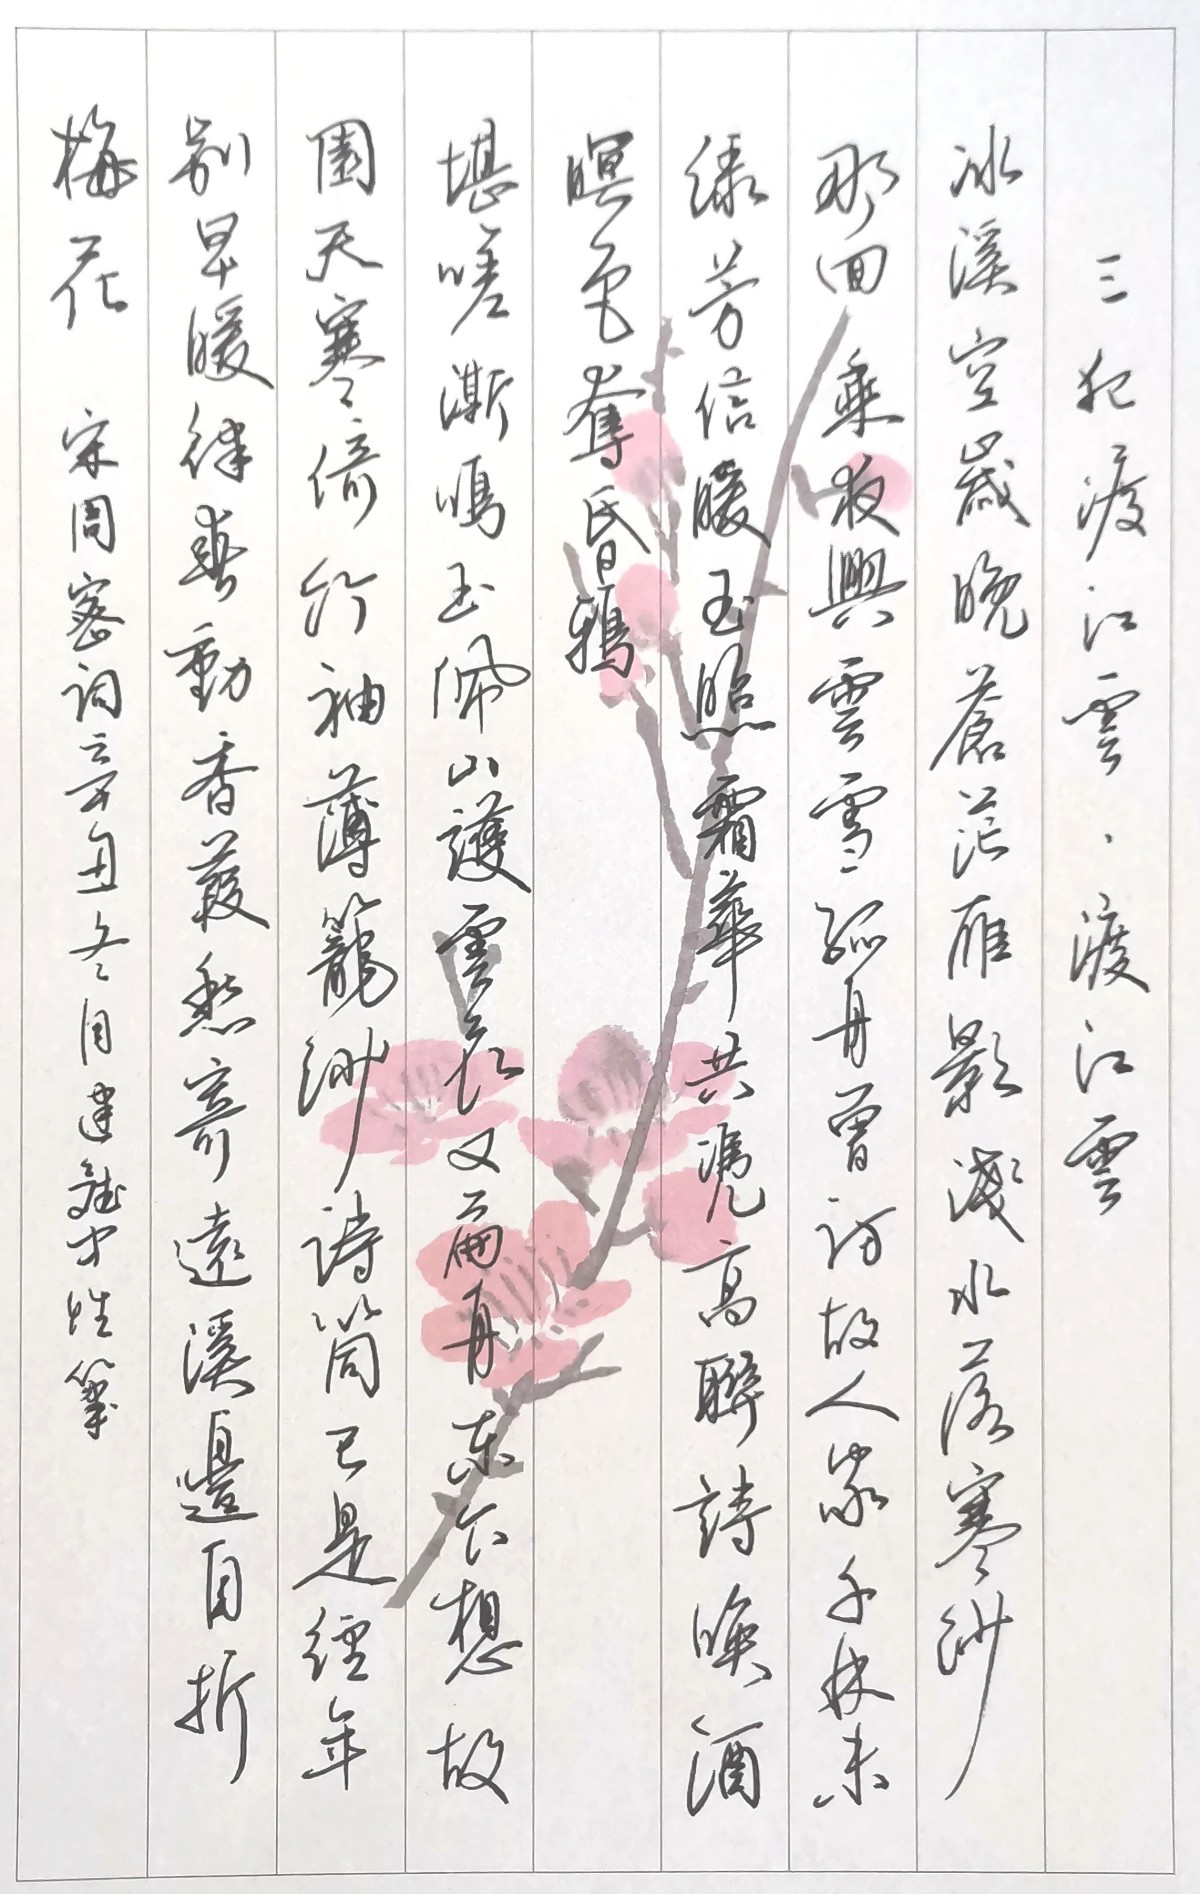 三犯渡江雲·渡江雲
冰溪空歲晚蒼茫雁影淺水落寒沙
那回乘夜興雲雪孤舟曾訪故人家千林未
綠芳信暖玉照霜華共凭高聯詩喚酒
暝色奪昏鴉
堪嗟澌鳴玉佩山護雲衣又扁舟東下想故
園天寒倚竹袖薄籠紗詩筒已是經年
別早暖律春動香葭愁寄遠溪邊自折
梅花 宋周密詞辛丑冬月建 書